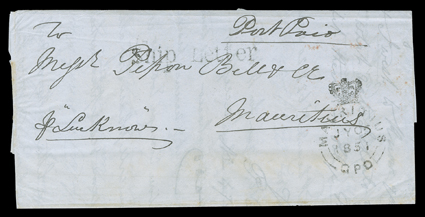 To
Post Paid
Ship Letter
Messrs Pipon Bell & Co
Mauritius
p "Lucknow"
MAURITIUS
GPO